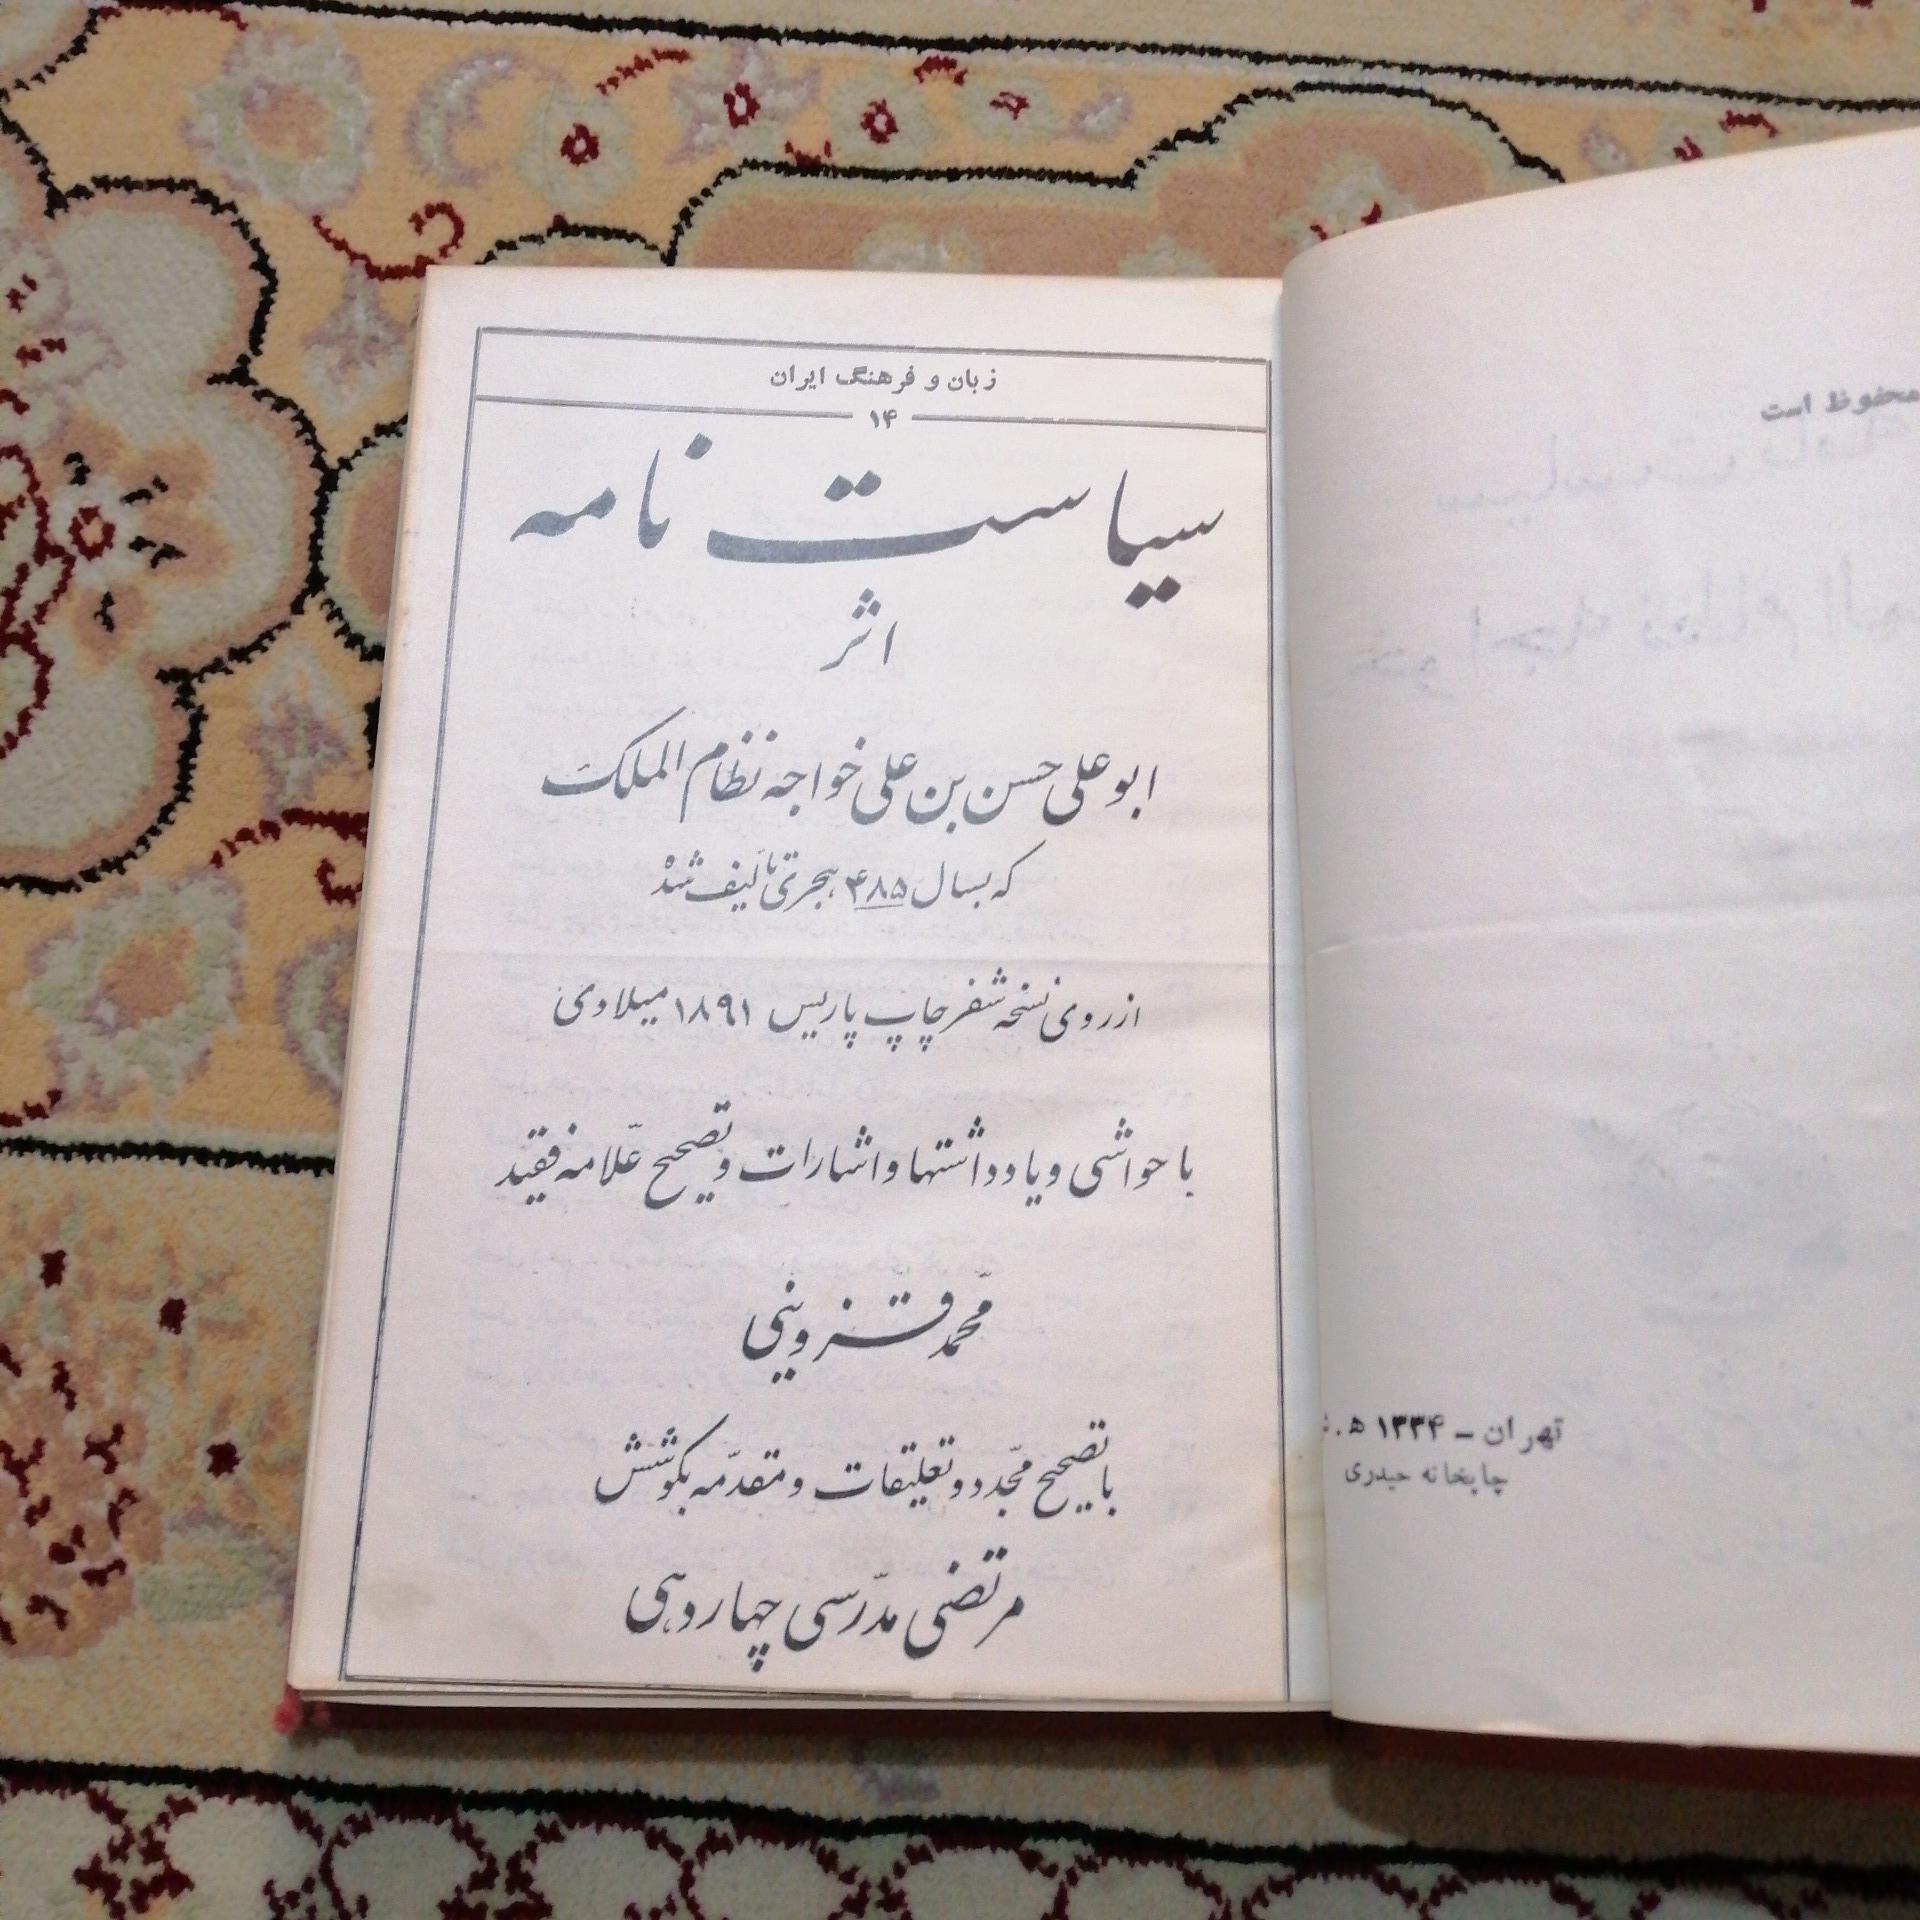 زبان و فرهنگ ایران
۱۴
سیاست نامه
اثر
ابوعلی حسن بن علی خواجه نظام الملک
که بسال ۴۸۵ هجری تألیف شد
از روی نسخه شفر چاپ پاریس ۱۸۹۱ میلادی
با حواشی و یادداشتها و اشارات و تصحیح علّامه فقید
محمّد قزوینی
با تصحیح مجّدد و تعلیقات و مقدّمه بکوشش
مرتضی مدرّسی چهاردهی
محفوظ است
تهران - ۱۳۳۴ ه.
چاپخانه حیدری